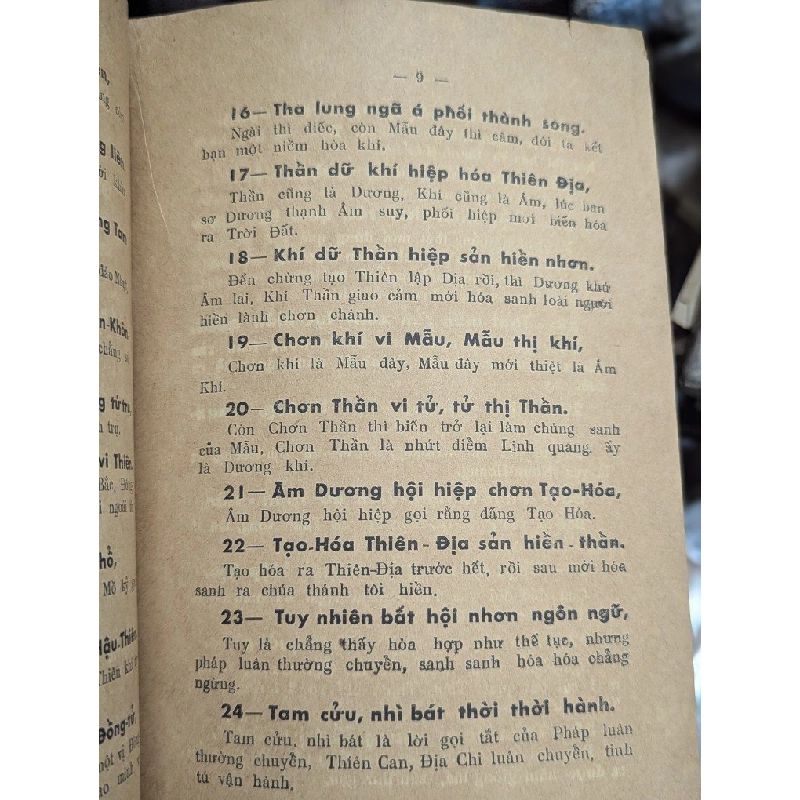 — 9 —
16— Tha lung ngã á phối thành song.
Ngài thì điếc, còn Mẫu đây thì câm, đôi ta kết
bạn một niềm hòa khí.
17— Thần dữ khí hiệp hóa Thiên Địa,
Thần cũng là Dương, Khí cũng là Âm, lúc ban
sơ Dương thạnh Âm suy, phối hiệp mới biến hóa
ra Trời Đất.
18— Khí dữ Thần hiệp sản hiền nhơn.
Đến chừng tạo Thiên lập Địa rồi, thì Dương khứ
Âm lai, Khí Thần giao cảm mới hóa sanh loài người
hiền lành chơn chánh.
19— Chơn khí vi Mẫu, Mẫu thị khí,
Chơn khí là Mẫu đây, Mẫu đây mới thiệt là Âm
Khí.
20— Chơn Thần vi tử, tử thị Thần.
Còn Chơn Thần thì biến trở lại làm chúng sanh
của Mẫu, Chơn Thần là nhứt điểm Linh quang ấy
là Dương khí.
21— Âm Dương hội hiệp chơn Tạo-Hóa,
Âm Dương hội hiệp gọi rằng đấng Tạo Hóa.
22— Tạo-Hóa Thiên-Địa sản hiền-thần.
Tạo hóa ra Thiên-Địa trước hết, rồi sau mới hóa
sanh ra chúa thánh tôi hiền.
23— Tuy nhiên bất hội nhơn ngôn ngữ,
Tuy là chẳng thấy hòa hợp như thế tục, nhưng
pháp luân thường chuyển, sanh sanh hóa hóa chẳng
ngừng.
24— Tam cửu, nhì bát thời thời hành.
Tam cửu, nhì bát là lời gọi tắt của Pháp luân
thường chuyển, Thiên Can, Địa Chi luân chuyển, tinh
tú vận hành.